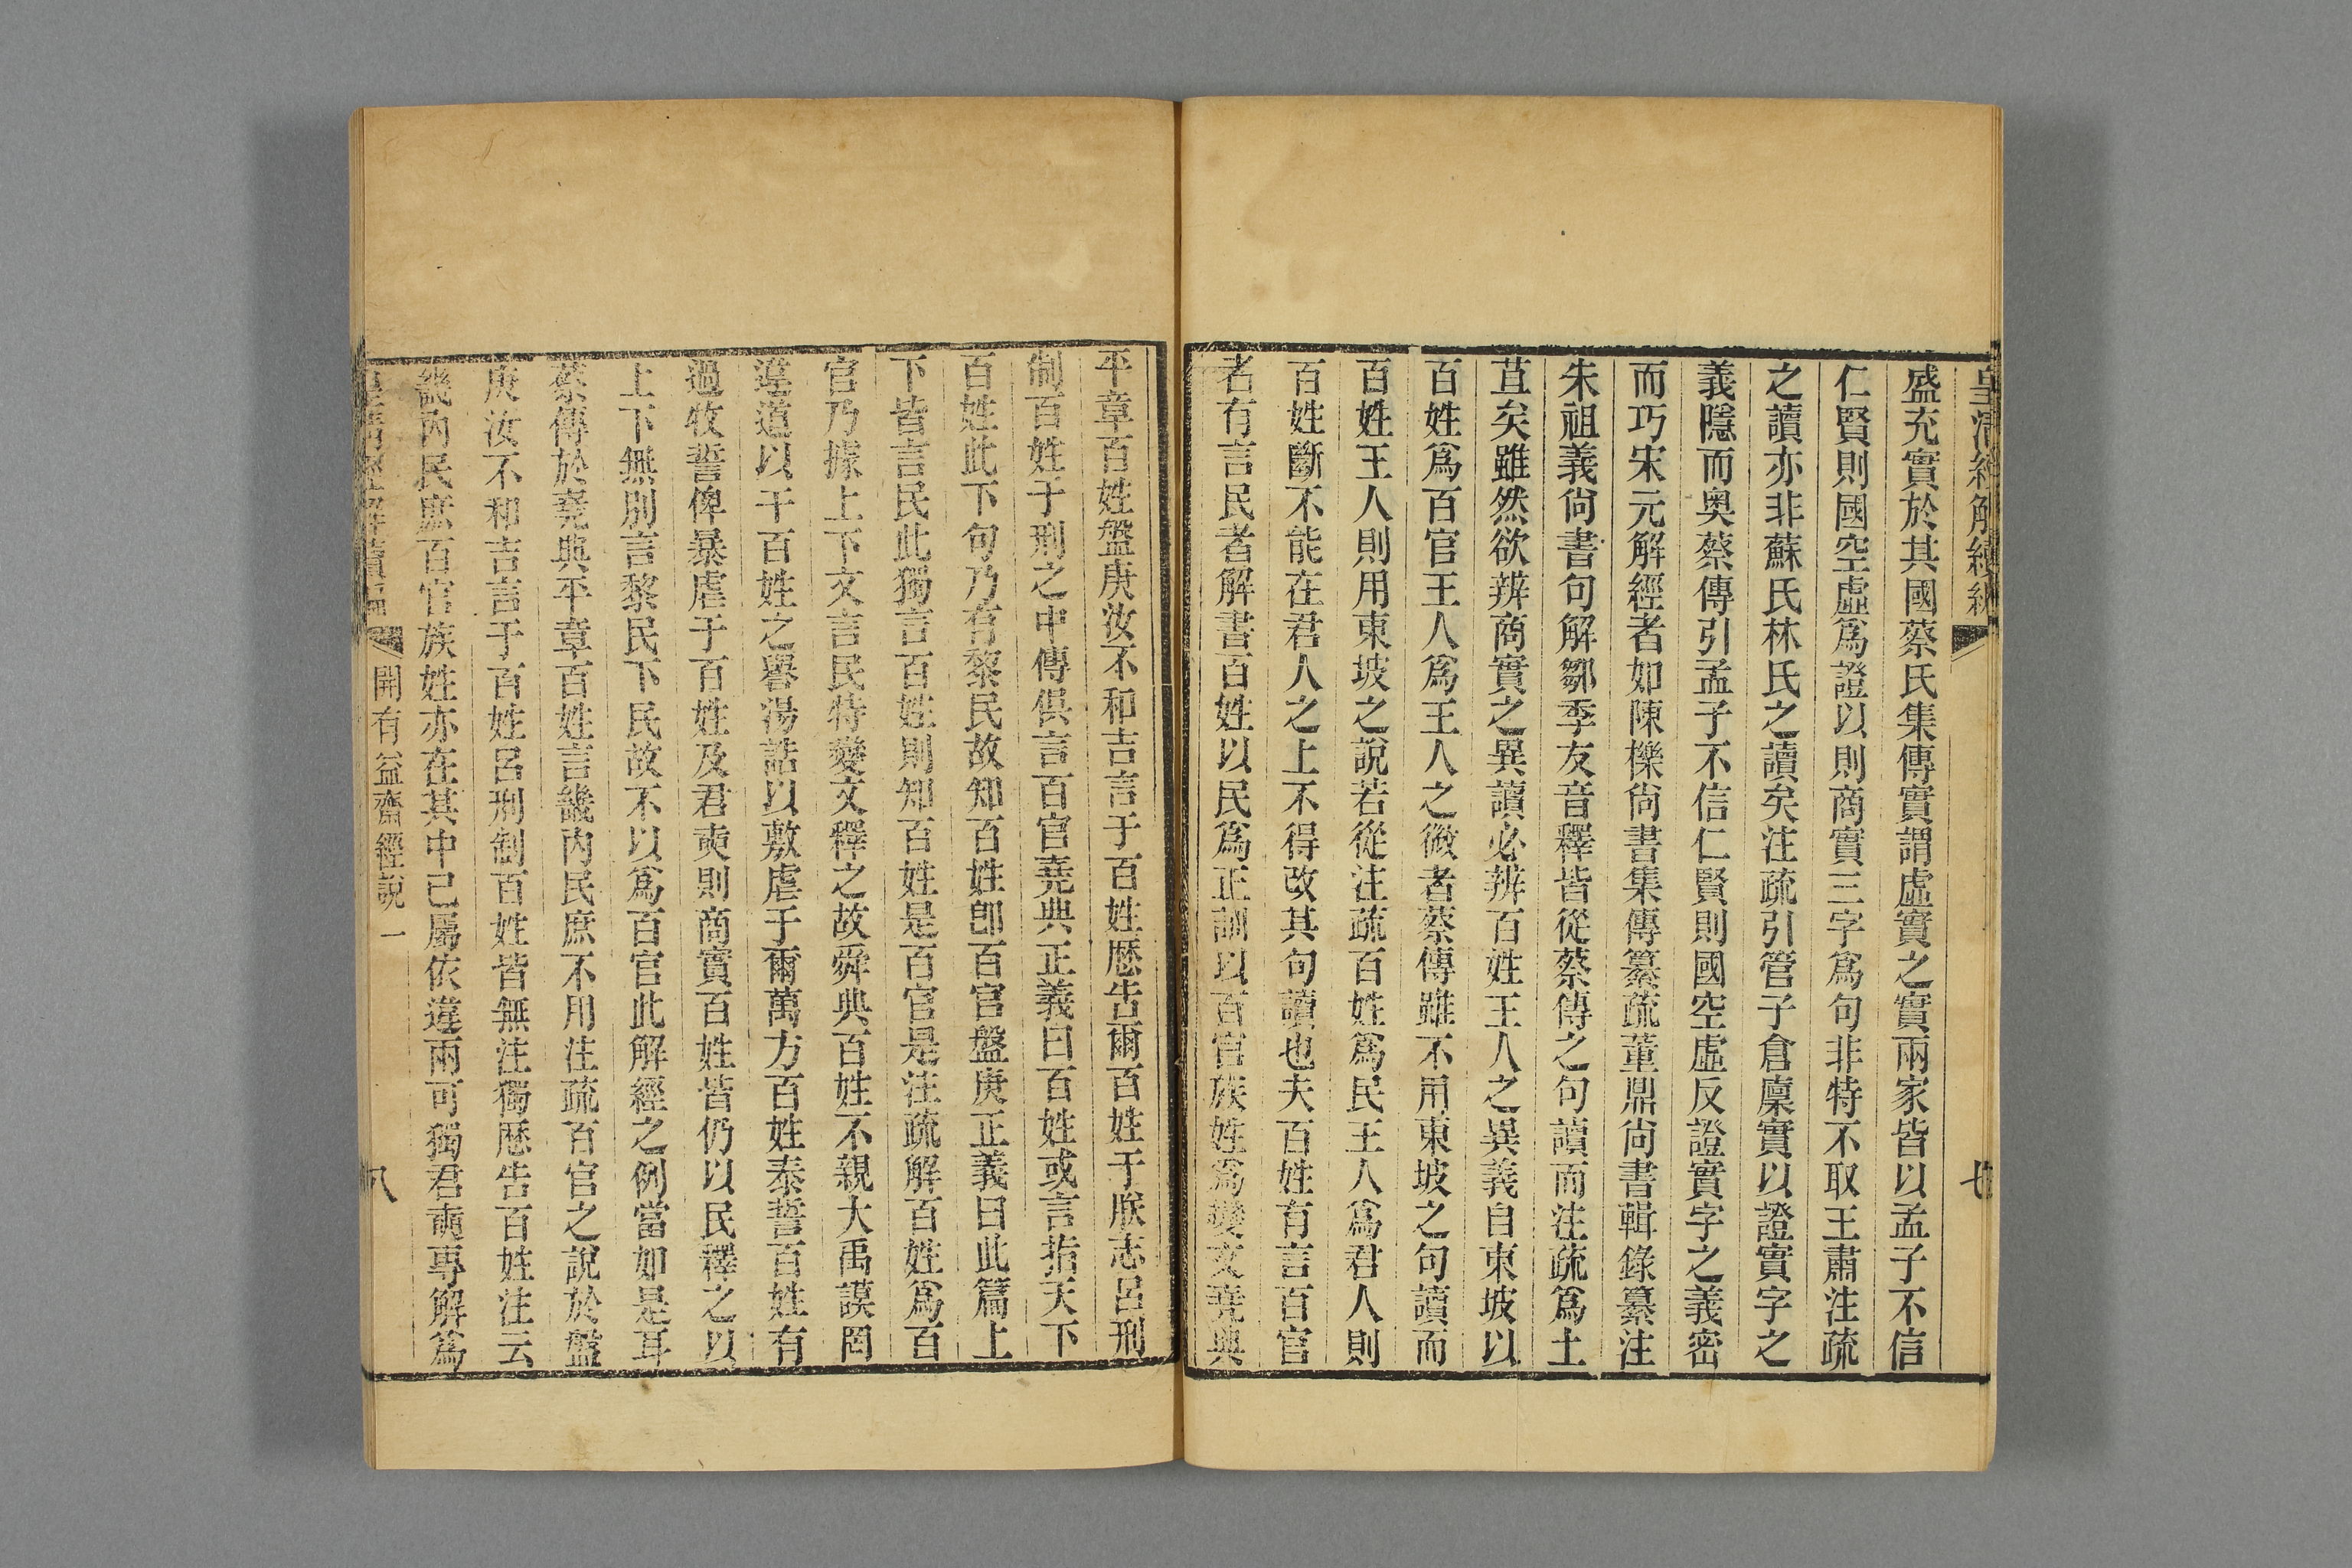 皇清經解續編
七
盛充實於其國蔡氏集傳實謂虛實之實兩家皆以孟子不信
仁賢則國空虛爲證以則商實三字爲句非特不取王肅注疏
之讀亦非蘇氏林氏之讀矣注疏引管子倉廩實以證實字之
義隱而奧蔡傳引孟子不信仁賢則國空虛反證實字之義密
而巧宋元解經者如陳櫟尙書集傳纂疏董鼎尙書輯錄纂注
朱祖義尙書句解鄒季友音釋皆從蔡傳之句讀而注疏爲土
苴矣雖然欲辨商實之異讀必辨百姓王人之異義自東坡以
百姓爲百官王人爲王人之微者蔡傳雖不用東坡之句讀而
百姓王人則用東坡之說若從注疏百姓爲民王人爲君人則
百姓斷不能在君人之上不得改其句讀也夫百姓有言百官
者有言民者解書百姓以民爲正訓以百官族姓爲變文堯典
平章百姓盤庚汝不和吉言于百姓厯告爾百姓于朕志呂刑
制百姓于刑之中傳俱言百官堯典正義曰百姓或言指天下
百姓此下句乃有黎民故知百姓卽百官盤庚正義曰此篇上
下皆言民此獨言百姓則知百姓是百官是注疏解百姓爲百
官乃據上下文言民特變文釋之故舜典百姓不親大禹謨罔
違道以干百姓之譽湯誥以敷虐于爾萬方百姓泰誓百姓有
過牧誓俾暴虐于百姓及君奭則商實百姓皆仍以民釋之以
上下無別言黎民下民故不以爲百官此解經之例當如是耳
蔡傳於堯典平章百姓言畿內民庶不用注疏百官之說於盤
庚汝不和吉言于百姓呂刑制百姓皆無注獨厯告百姓注云
畿內民庶百官族姓亦在其中已屬依違兩可獨君奭專解爲
皇清經解續編
開有益齋經說一
八